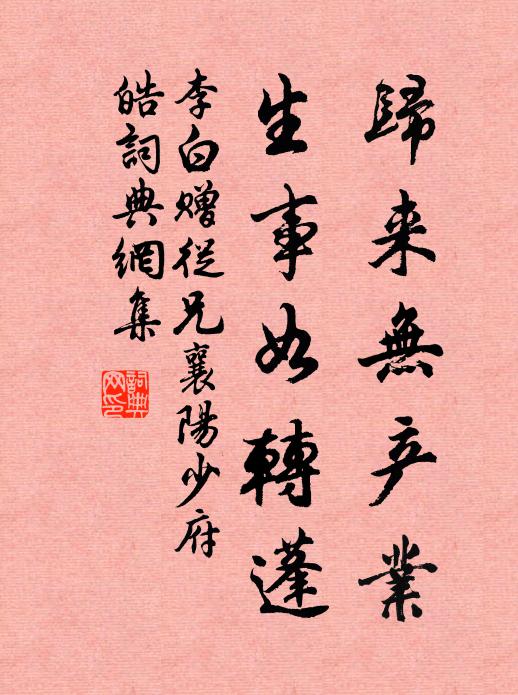 歸来無产業
生事如轉蓬
李白赠從兄襄陽少府
皓詞典網集
詞典
网印